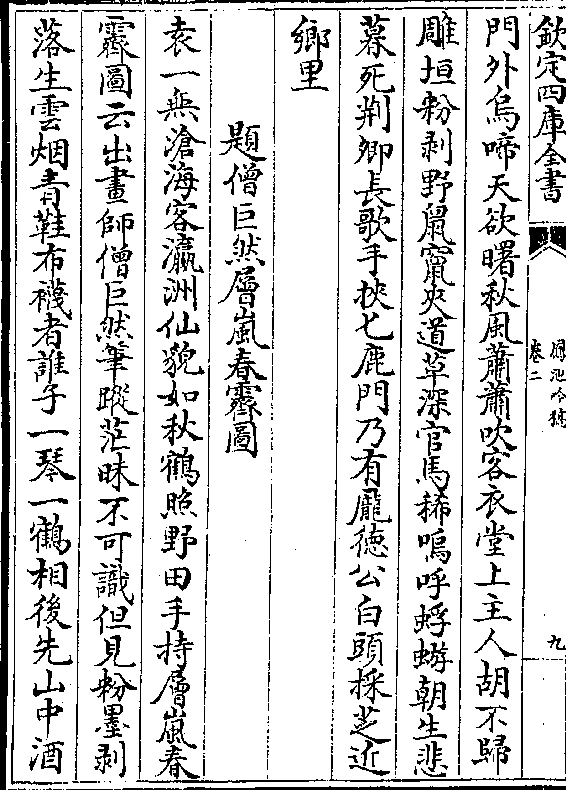 欽定四庫全書
卷二
九
門外烏啼天欲曙秋風蕭蕭吹客衣堂上主人胡不歸
雕垣粉剥野鼠竄夾道草深官馬稀嗚呼蜉蝣朝生悲
暮死荆卿長歌手挾匕鹿門乃有龐德公白頭採芝近
鄉里
題僧巨然層嵐春霽圖
袁一無滄海客瀛洲仙貌如秋鶴照野田手持層嵐春
霽圖云出畫師僧巨然筆蹤茫昧不可識但見粉墨剥
落生雲烟青鞋布襪者誰子一琴一鶴相後先山中酒